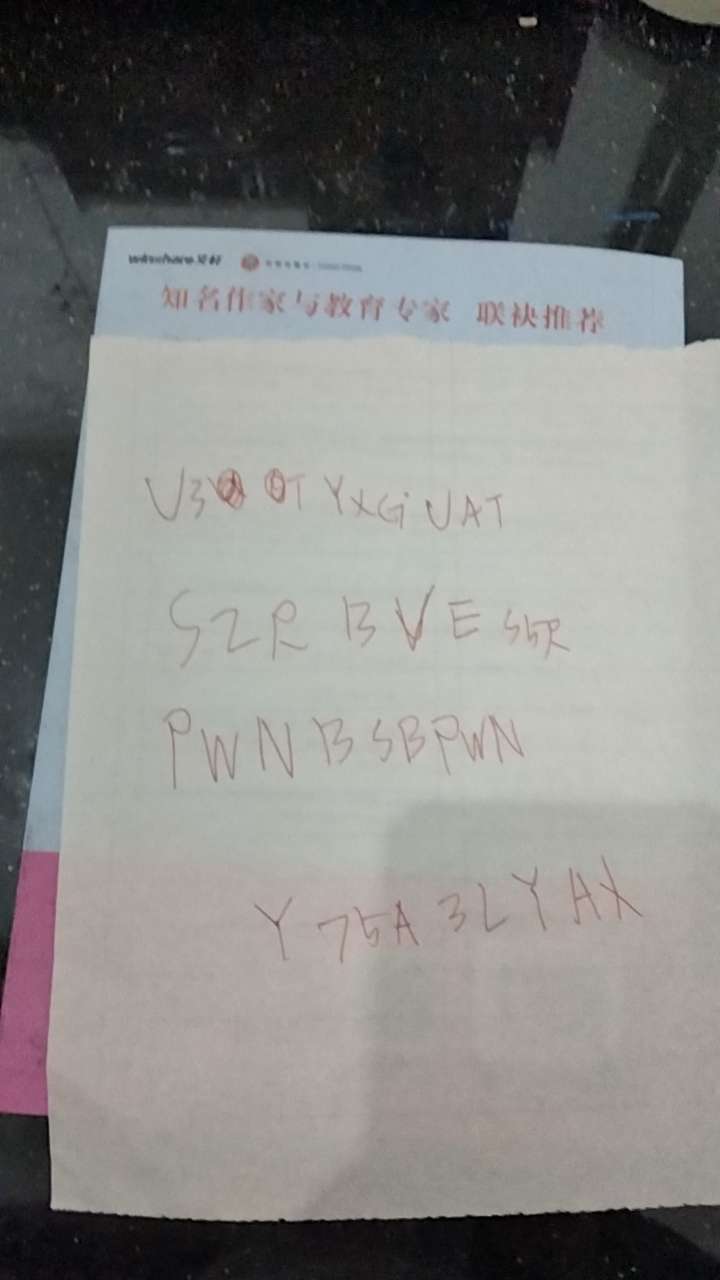 winshare文轩
知名作家与教育专家 联袂推荐
V3 T YXG UAT
SZR BVE S5R
PWN BSBPWN
Y 75A 3LYAX